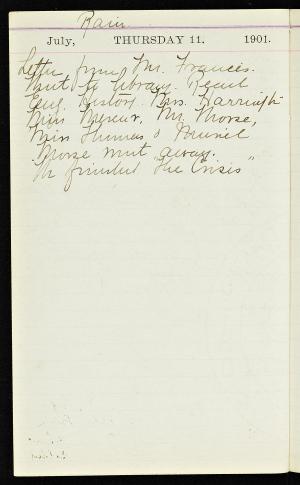 Rain
July, THURSDAY 11. 1901.
Letter from Mr. Francis.
Went to library. Read
Eng. History. Mrs. Harrington
Miss Mercur, Mr. Morse,
Miss Thomas & Muriel
Morse went away.
M finished "The Crisis"